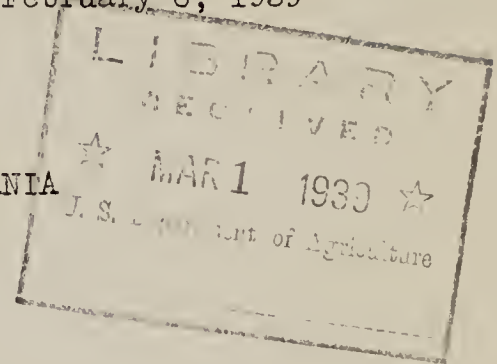 February 1939
LIBRARY
RECEIVED
☆ MAR 1 1939 ☆
NIA
U. S. Department of Agriculture